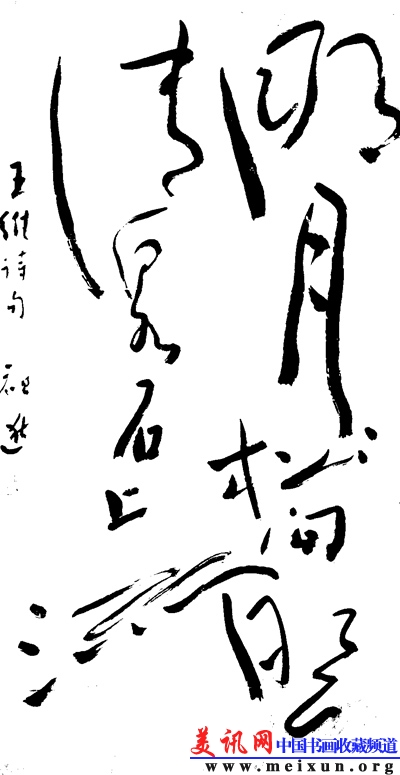 明月松間照
清泉石上流
王維詩句
美讯网 中国书画收藏频道
www.meixun.org